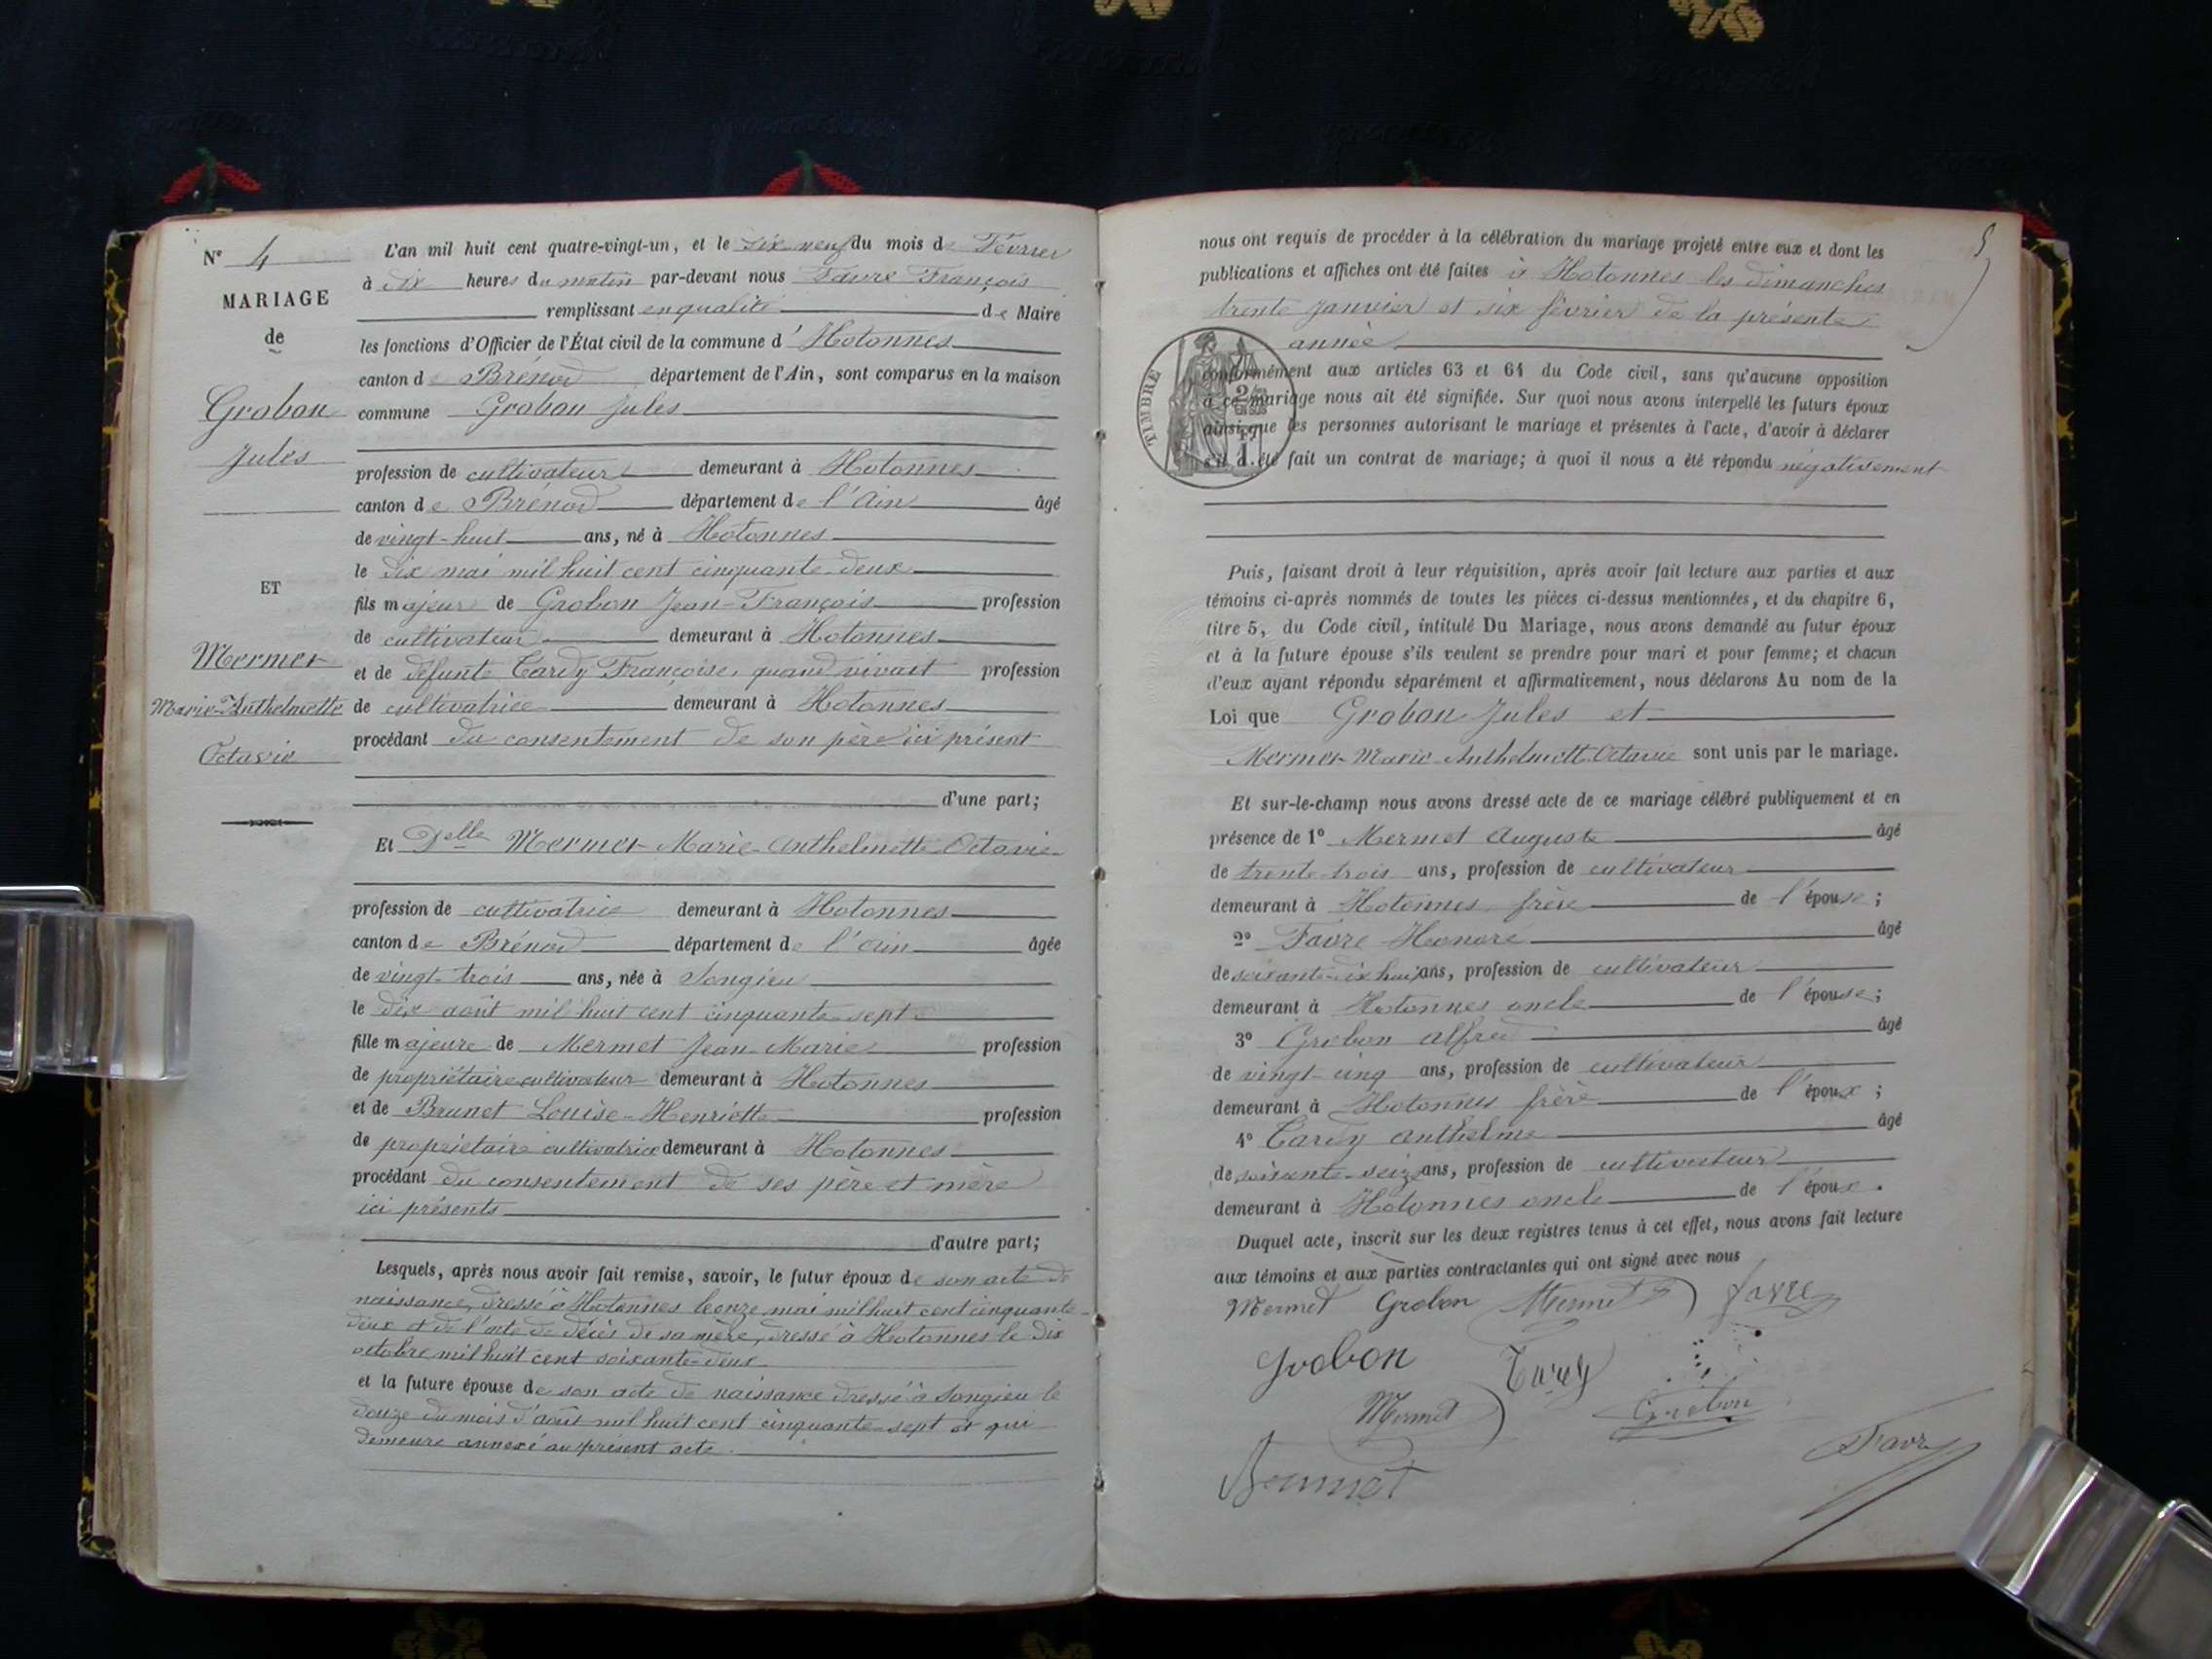 N° 4
MARIAGE
de
Grobon
Jules
ET
Mermet
Marie-Anthelmette
Octavie
L'an mil huit cent quatre-vingt-un, et le dix neuf du mois de Février
à dix heures du matin par-devant nous Favre François
remplissant en qualité de Maire
les fonctions d'Officier de l'État civil de la commune d'Hotonnes
canton de Brénod département de l'Ain, sont comparus en la maison
commune Grobon Jules
profession de cultivateur demeurant à Hotonnes
canton de Brénod département de l'Ain âgé
de vingt-huit ans, né à Hotonnes
le dix mai mil huit cent cinquante-deux
fils majeur de Grobon Jean-François profession
de cultivateur demeurant à Hotonnes
et de défunte Tardy Françoise, quand vivait profession
de cultivatrice demeurant à Hotonnes
procédant du consentement de son père ici présent
d'une part;
Et Delle Mermet Marie-Anthelmette-Octavie
profession de cultivatrice demeurant à Hotonnes
canton de Brénod département de l'Ain âgée
de vingt-trois ans, née à Songieu
le dix août mil huit cent cinquante-sept
fille majeure de Mermet Jean-Marie profession
de propriétaire cultivateur demeurant à Hotonnes
et de Brunet Louise-Henriette profession
de propriétaire cultivatrice demeurant à Hotonnes
procédant du consentement de ses père et mère
ici présents
d'autre part;
Lesquels, après nous avoir fait remise, savoir, le futur époux de son acte de
naissance, dressé à Hotonnes le onze mai mil huit cent cinquante-
deux et de l'acte de décès de sa mère, dressé à Hotonnes le dix
octobre mil huit cent soixante-deux
et la future épouse de son acte de naissance dressé à Songieu le
douze du mois d'août mil huit cent cinquante-sept et qui
demeure annexé au présent acte.
5
nous ont requis de procéder à la célébration du mariage projeté entre eux et dont les
publications et affiches ont été faites à Hotonnes les dimanches
trente janvier et six février de la présente
année
TIMBRE
2/10 EN SUS
1F
conformément aux articles 63 et 64 du Code civil, sans qu'aucune opposition
à ce mariage nous ait été signifiée. Sur quoi nous avons interpellé les futurs époux
ainsi que les personnes autorisant le mariage et présentes à l'acte, d'avoir à déclarer
s'il a été fait un contrat de mariage; à quoi il nous a été répondu négativement
Puis, faisant droit à leur réquisition, après avoir fait lecture aux parties et aux
témoins ci-après nommés de toutes les pièces ci-dessus mentionnées, et du chapitre 6,
titre 5, du Code civil, intitulé Du Mariage, nous avons demandé au futur époux
et à la future épouse s'ils veulent se prendre pour mari et pour femme; et chacun
d'eux ayant répondu séparément et affirmativement, nous déclarons Au nom de la
Loi que Grobon Jules et
Mermet Marie-Anthelmett Octavie sont unis par le mariage.
Et sur-le-champ nous avons dressé acte de ce mariage célébré publiquement et en
présence de 1° Mermet Auguste âgé
de trente-trois ans, profession de cultivateur
demeurant à Hotonnes frère de l'épouse;
2° Favre Honoré âgé
de soixante-dix huit ans, profession de cultivateur
demeurant à Hotonnes oncle de l'épouse;
3° Grobon Alfred âgé
de vingt-cinq ans, profession de cultivateur
demeurant à Hotonnes frère de l'époux;
4° Tardy Anthelme âgé
de soixante-seize ans, profession de cultivateur
demeurant à Hotonnes oncle de l'époux.
Duquel acte, inscrit sur les deux registres tenus à cet effet, nous avons fait lecture
aux témoins et aux parties contractantes qui ont signé avec nous
Mermet Grobon Mermet Favre
Grobon Tardy
Mermet Grobon
Favre
Brunet